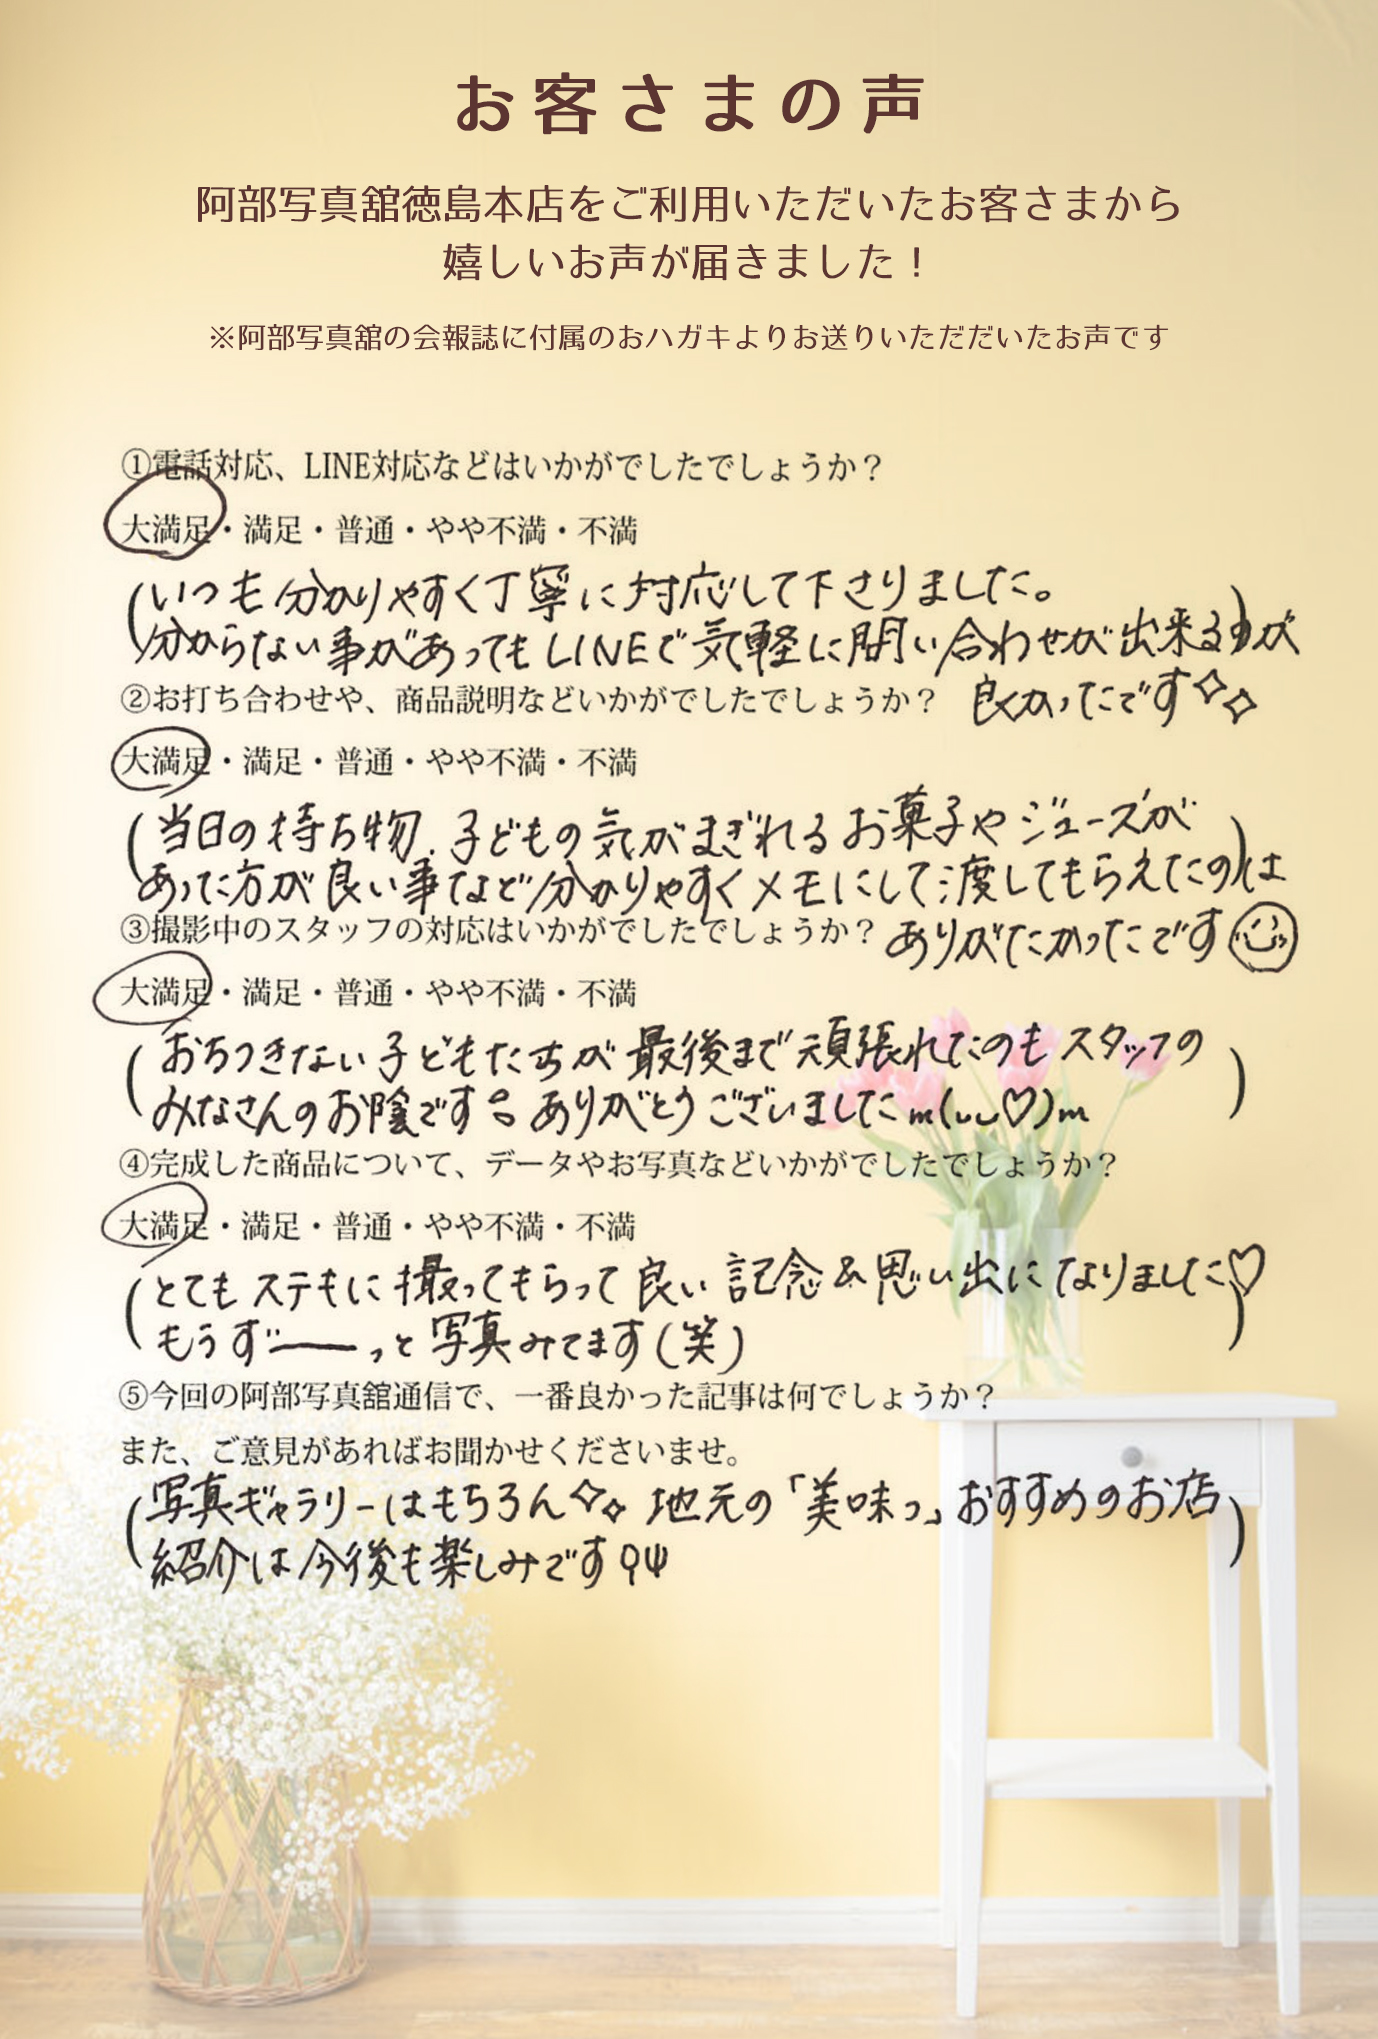 お客さまの声
阿部写真舘徳島本店をご利用いただいたお客さまから
嬉しいお声が届きました！
※阿部写真舘の会報誌に付属のおハガキよりお送りいただだいたお声です
①電話対応、LINE対応などはいかがでしたでしょうか？
大満足・満足・普通・やや不満・不満
(いつも分かりやすく丁寧に対応して下さりました。)
分からない事があってもLINEで気軽に問い合わせが出来るのが
良かったです✧✧
②お打ち合わせや、商品説明などいかがでしたでしょうか？
大満足・満足・普通・やや不満・不満
(当日の持ち物、子どもの気がまぎれるお菓子やジュースが)
あった方が良い事など分かりやすくメモにして渡してもらえたのは
ありがたかったです☺
③撮影中のスタッフの対応はいかがでしたでしょうか？
大満足・満足・普通・やや不満・不満
(おちつきない子どもたちが最後まで頑張れたのもスタッフの
みなさんのお陰です。ありがとうございましたm(᎑᎑♡)m)
④完成した商品について、データやお写真などいかがでしたでしょうか？
大満足・満足・普通・やや不満・不満
(とてもステキに撮ってもらって良い記念&思い出になりました♡
もうずーっと写真みてます(笑))
⑤今回の阿部写真舘通信で、一番良かった記事は何でしょうか？
また、ご意見があればお聞かせくださいませ。
(写真ギャラリーはもちろん✧✧地元の「美味っ」おすすめのお店
紹介は今後も楽しみです)